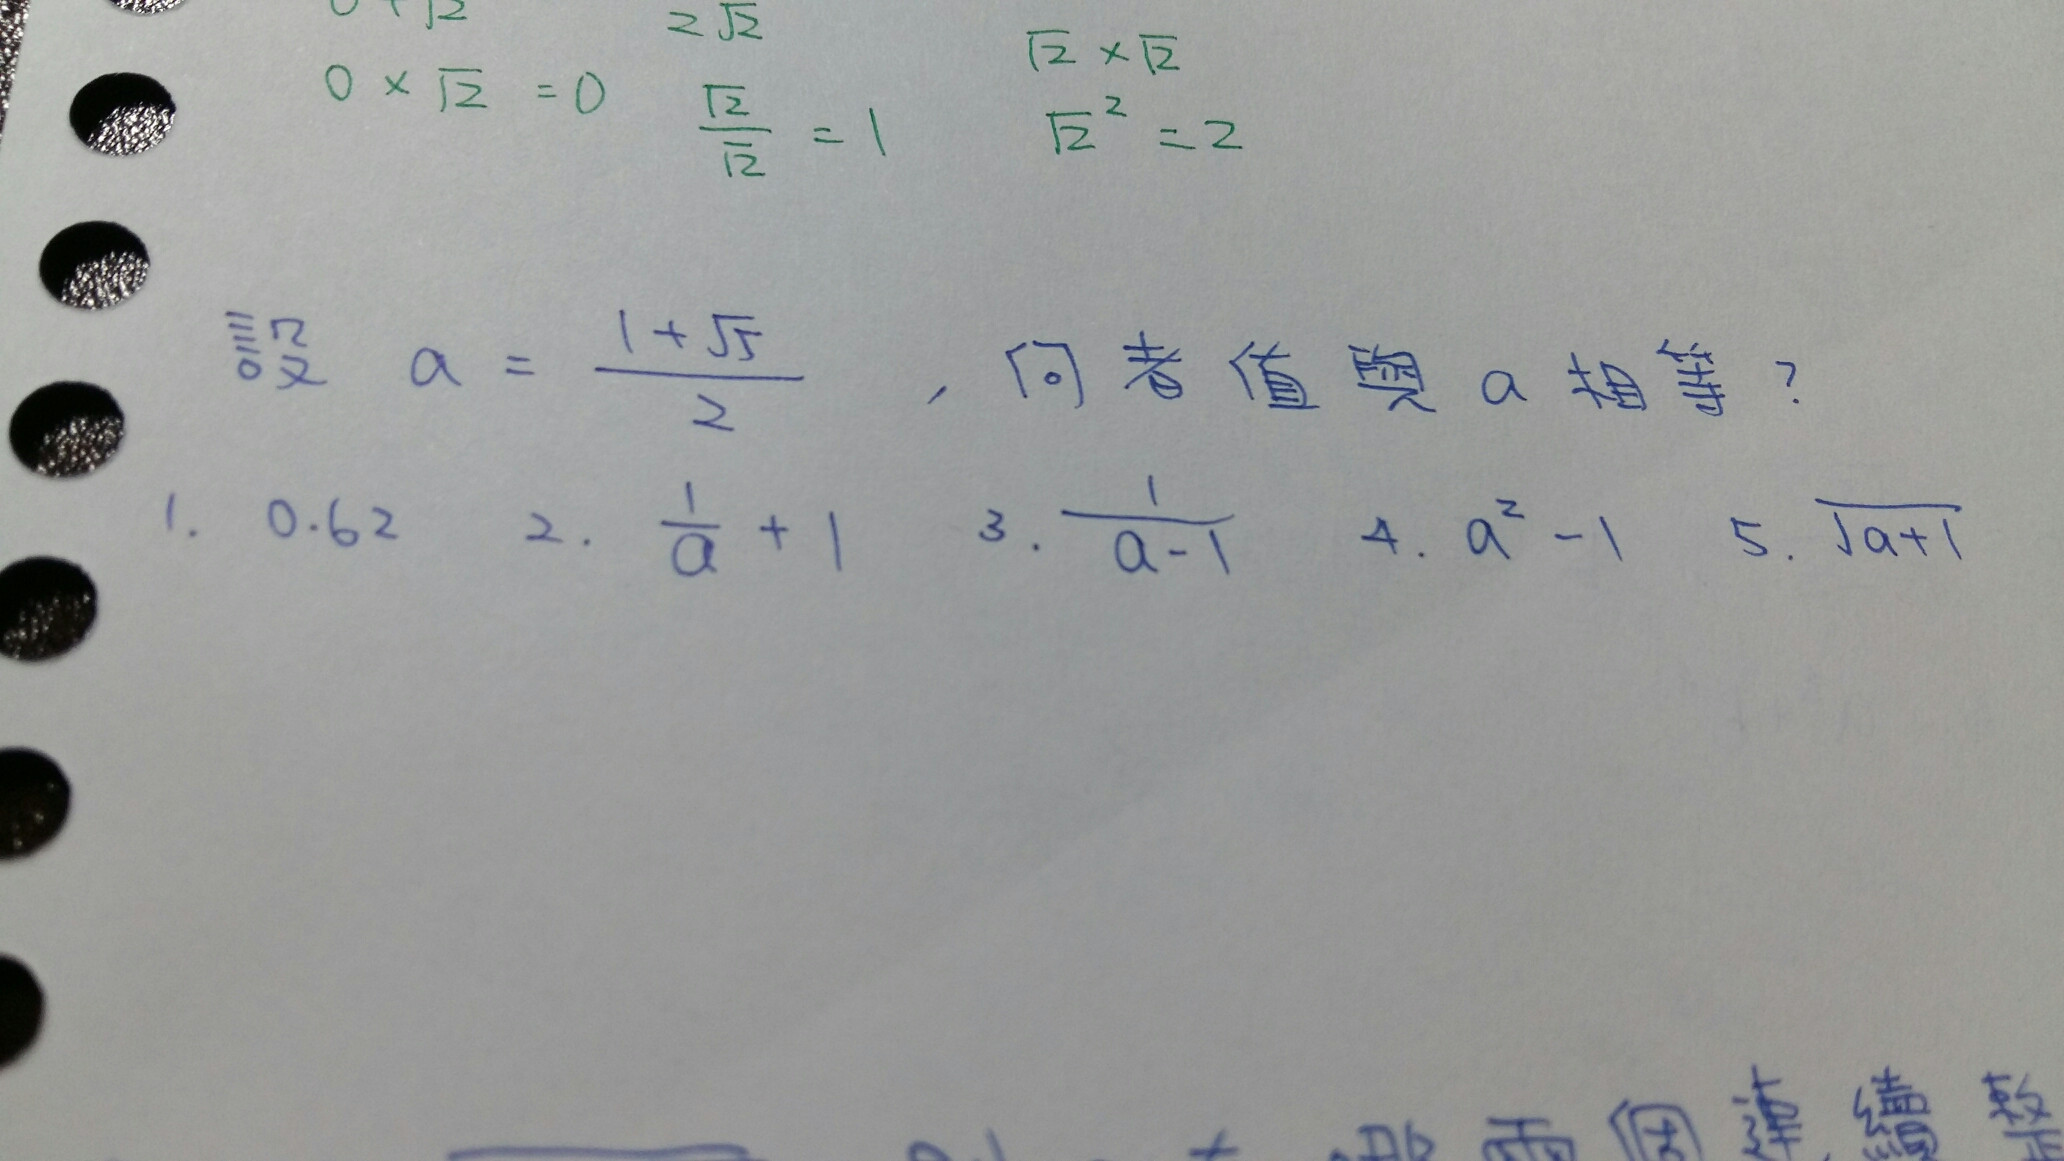 0+√2 2√2 √2 × √2
0 × √2 = 0 √2/√2 = 1 √2² = 2
設 a = (1+√5)/2 , 何者值與 a 相等?
1. 0.62 2. 1/a + 1 3. 1/(a-1) 4. a² - 1 5. √(a+1)
哪兩個連續整